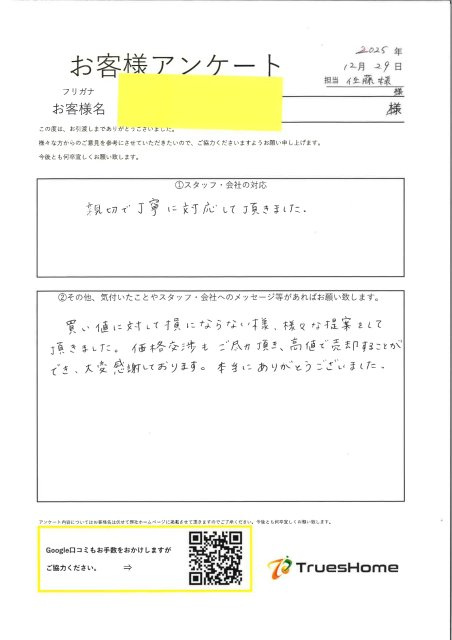 2025年
お客様アンケート
12月29日
担当 佐藤様
フリガナ
様
お客様名
様
この度は、お引渡しまでありがとうございました。
様々な方からのご意見を参考にさせていただきたいので、ご協力くださいますようお願い申し上げます。
今後とも何卒宜しくお願い致します。
①スタッフ・会社の対応
親切で丁寧に対応して頂きました。
②その他、気付いたことやスタッフ・会社へのメッセージ等があればお願い致します。
買い値に対して損にならない様、様々な提案をして
頂きました。価格交渉もご尽力頂き、高値で売却することが
でき、大変感謝しております。本当にありがとうございました。
アンケート内容についてはお客様名は伏せて弊社ホームページに掲載させて頂きますのでご了承ください。今後とも何卒宜しくお願い致します。
Google口コミもお手数をおかけしますが
ご協力ください。 ⇒
TruesHome